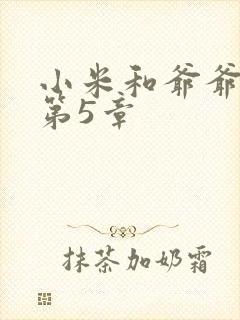 小米和爷爷
第5章
抹茶加奶霜